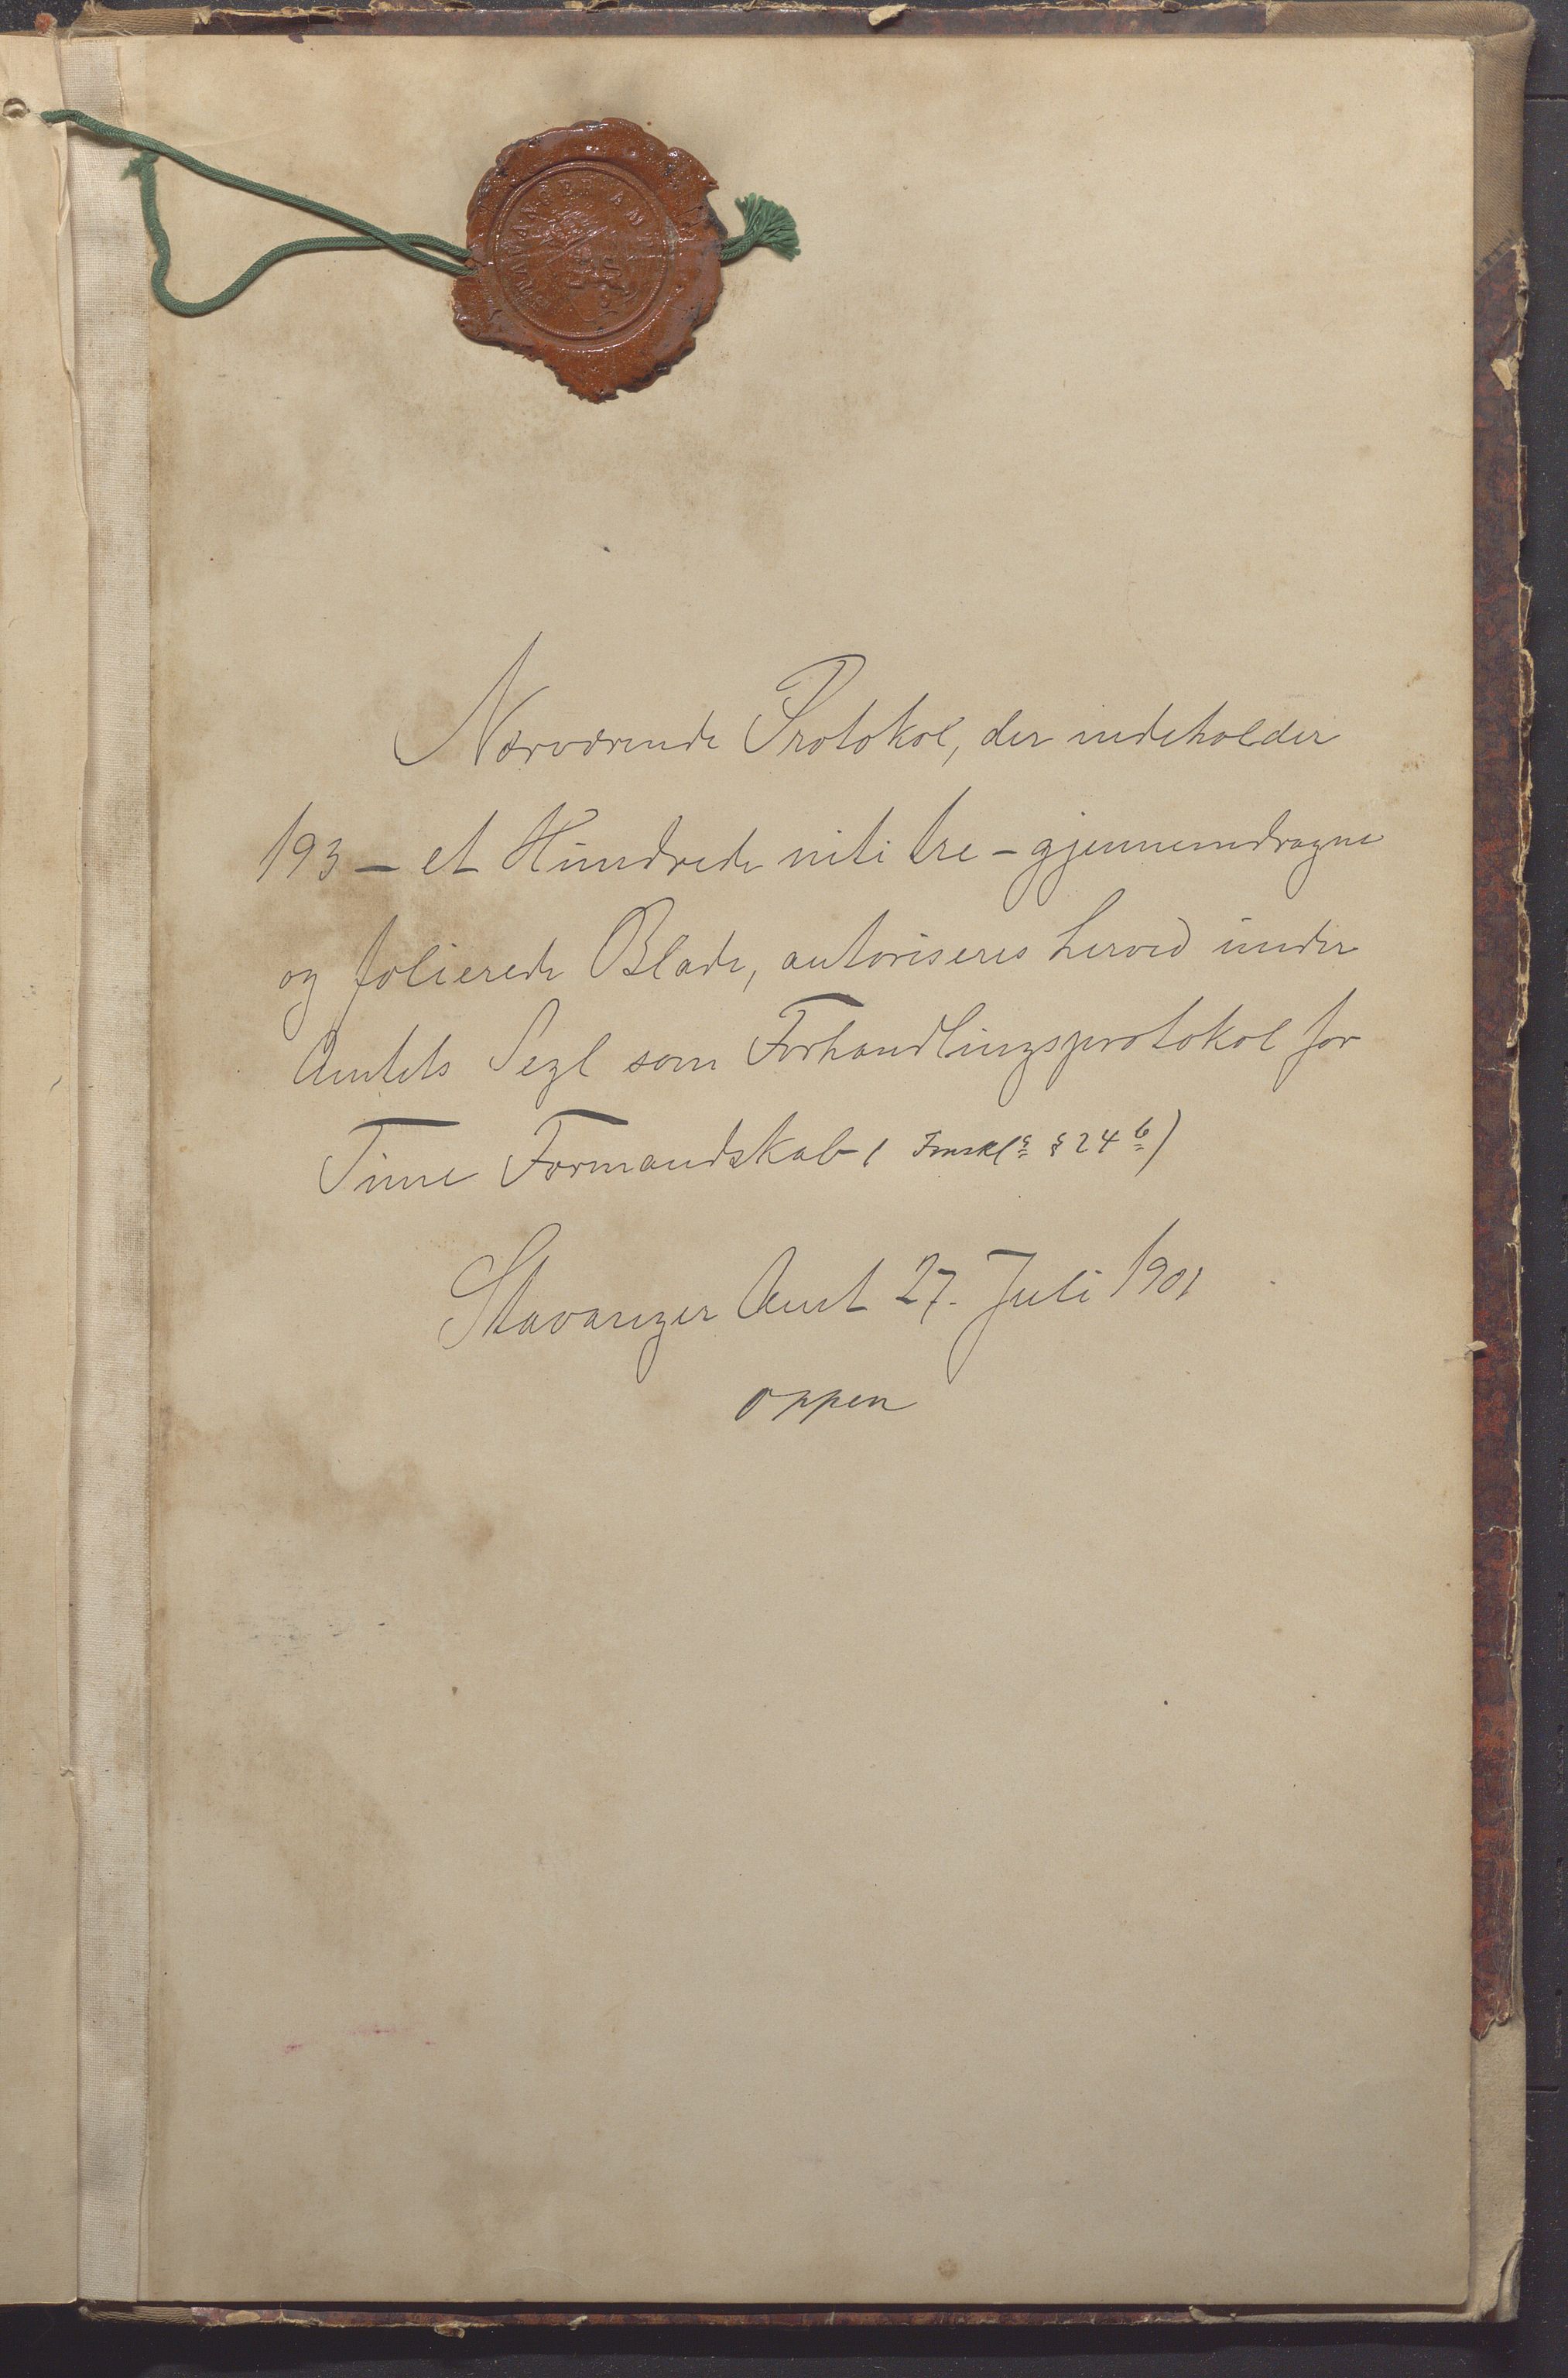 STAVANGER AMT
Nærværende Protokol, der indeholder
193 – et Hundrede niti tre – gjennemdragne
og folierede Blade, autoriseres herved under
Amtets Segl som Forhandlingsprotokol for
Time Formandskab ( § 24 b)
Stavanger Amt 27. Juli 1901
Oppen